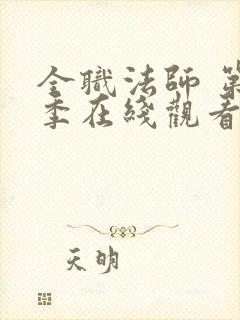 全職法師 第
季在綫觀看
天明